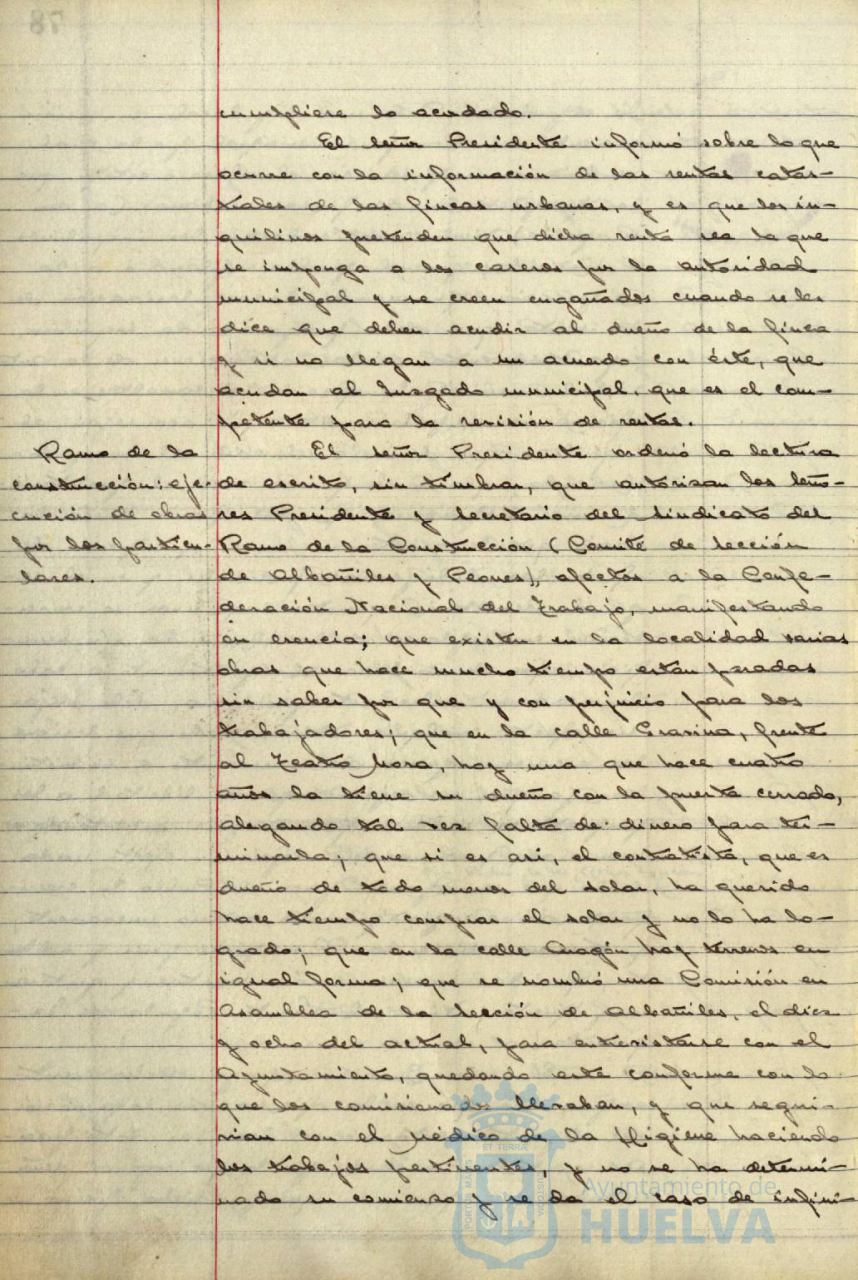 cumpliese lo acordado.
El señor Presidente informó sobre lo que
ocurre con la información de las rentas catas-
trales de las fincas urbanas, y es que los in-
quilinos pretenden que dicha renta sea la que
se imponga a los caseros por la autoridad
municipal y se creen engañados cuando se les
dice que deben acudir al dueño de la finca
y si no llegan a un acuerdo con éste, que
acudan al Juzgado municipal, que es el com-
petente para la revisión de rentas.
Ramo de la
construcción: eje-
cución de obras
por los particu-
lares.
El señor Presidente ordenó la lectura
de escrito, sin timbrar, que autorizan los seño-
res Presidente y Secretario del Sindicato del
Ramo de la Construcción (Comité de Sección
de Albañiles y Peones), afectos a la Confe-
deración Nacional del Trabajo, manifestando
en esencia; que existen en la localidad varias
obras que hace mucho tiempo están paradas
sin saber por que y con perjuicio para los
trabajadores; que en la calle Gravina, frente
al Teatro Mora, hay una que hace cuatro
años la tiene su dueño con la puerta cerrada,
alegando tal vez falta de dinero para ter-
minarla; que si es así, el contratista, que es
dueño de todo menos del solar, ha querido
hace tiempo comprar el solar y no lo ha lo-
grado; que en la calle Aragón hay terrenos en
igual forma; que se nombró una Comisión en
Asamblea de la Sección de Albañiles, el diez
y ocho del actual, para entrevistarse con el
Ayuntamiento, quedando este conforme con lo
que los comisionados llevaban, y que segui-
rían con el Médico de la Higiene haciendo
los trabajos pertinentes, y no se ha determi-
nado su comienzo y se da el caso de infini-
Ayuntamiento de
HUELVA